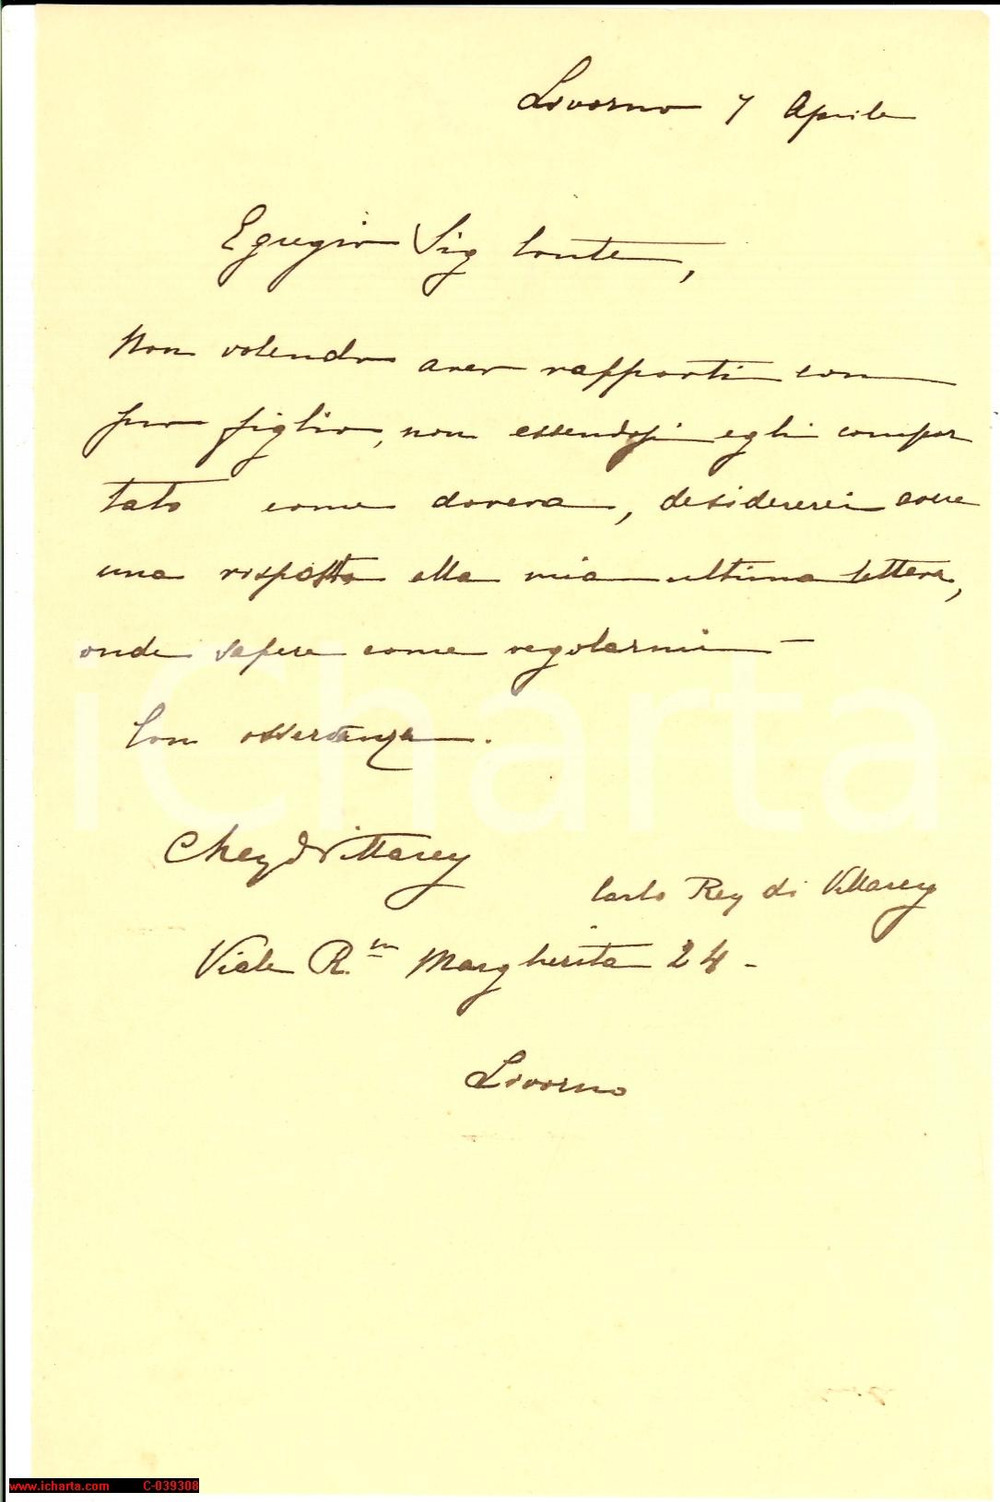 Livorno 7 Aprile
Egregio Sig Conte,
Non volendo aver rapporti con
suo figlio, non essendosi egli compor
tato come doveva, desidererei avere
una risposta alla mia ultima lettera,
onde sapere come regolarmi —
Con osservanza.
CRey di Villarey
Carlo Rey di Villarey
Viale R.na Margherita 24 -
Livorno
iCharta
www.icharta.com C-039308